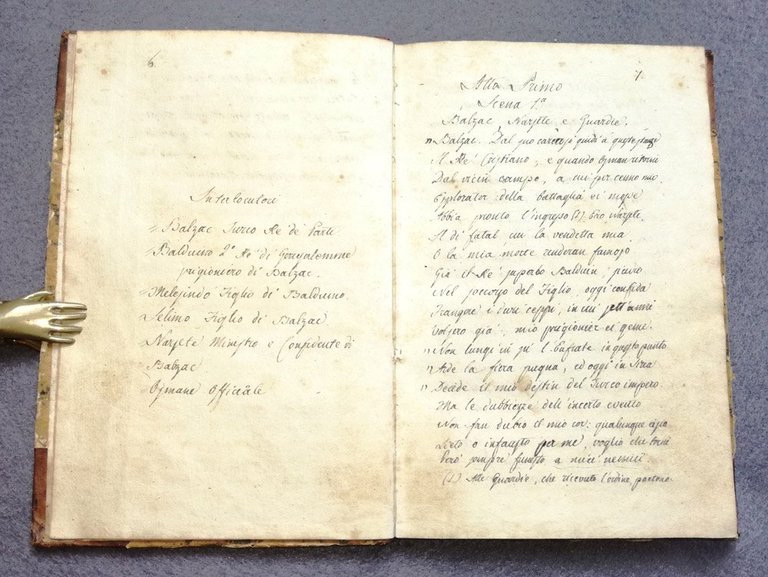 6.
Interlocutori
Balzac Turco Re di Parti
Balduino 2º Re di Gerusalemme
prigioniero di Balzac.
Melesindo Figlio di Balduino.
Selimo Figlio di Balzac
Narsete Ministro e Confidente di
Balzac
Osmane Officiale
7.
Atto Primo
Scena 1ª
Balzac Narsete e Guardie.
Balzac. Dal suo carcere si guidi a queste
Il Re Cristiano, e quando Osman ritorni
Dal vicin campo, a cui per cenno mio
Esplorator della battaglia ei
Abbia pronto l'ingresso (1).
Il di fatal
O la mia morte fumoso
Già il Re superbo Balduin,
Nel soccorso del Figlio, oggi confida
Frangere i duri ceppi, in cui sett'anni
già, mio prigionier ei geme.
Non lungi in su l'Eufrate in questo punto
Arde la fiera pugna, ed oggi in Siria
Decide il mio destin del Turco impero.
Ma le dubbiezze dell'incerto evento
Non fan dubio il mio cor: qualunque
Lieto o infausto per me, voglio che torni
Però sempre funesto a miei nemici
(1) Alle Guardie, che ricevuto l'ordine, partono